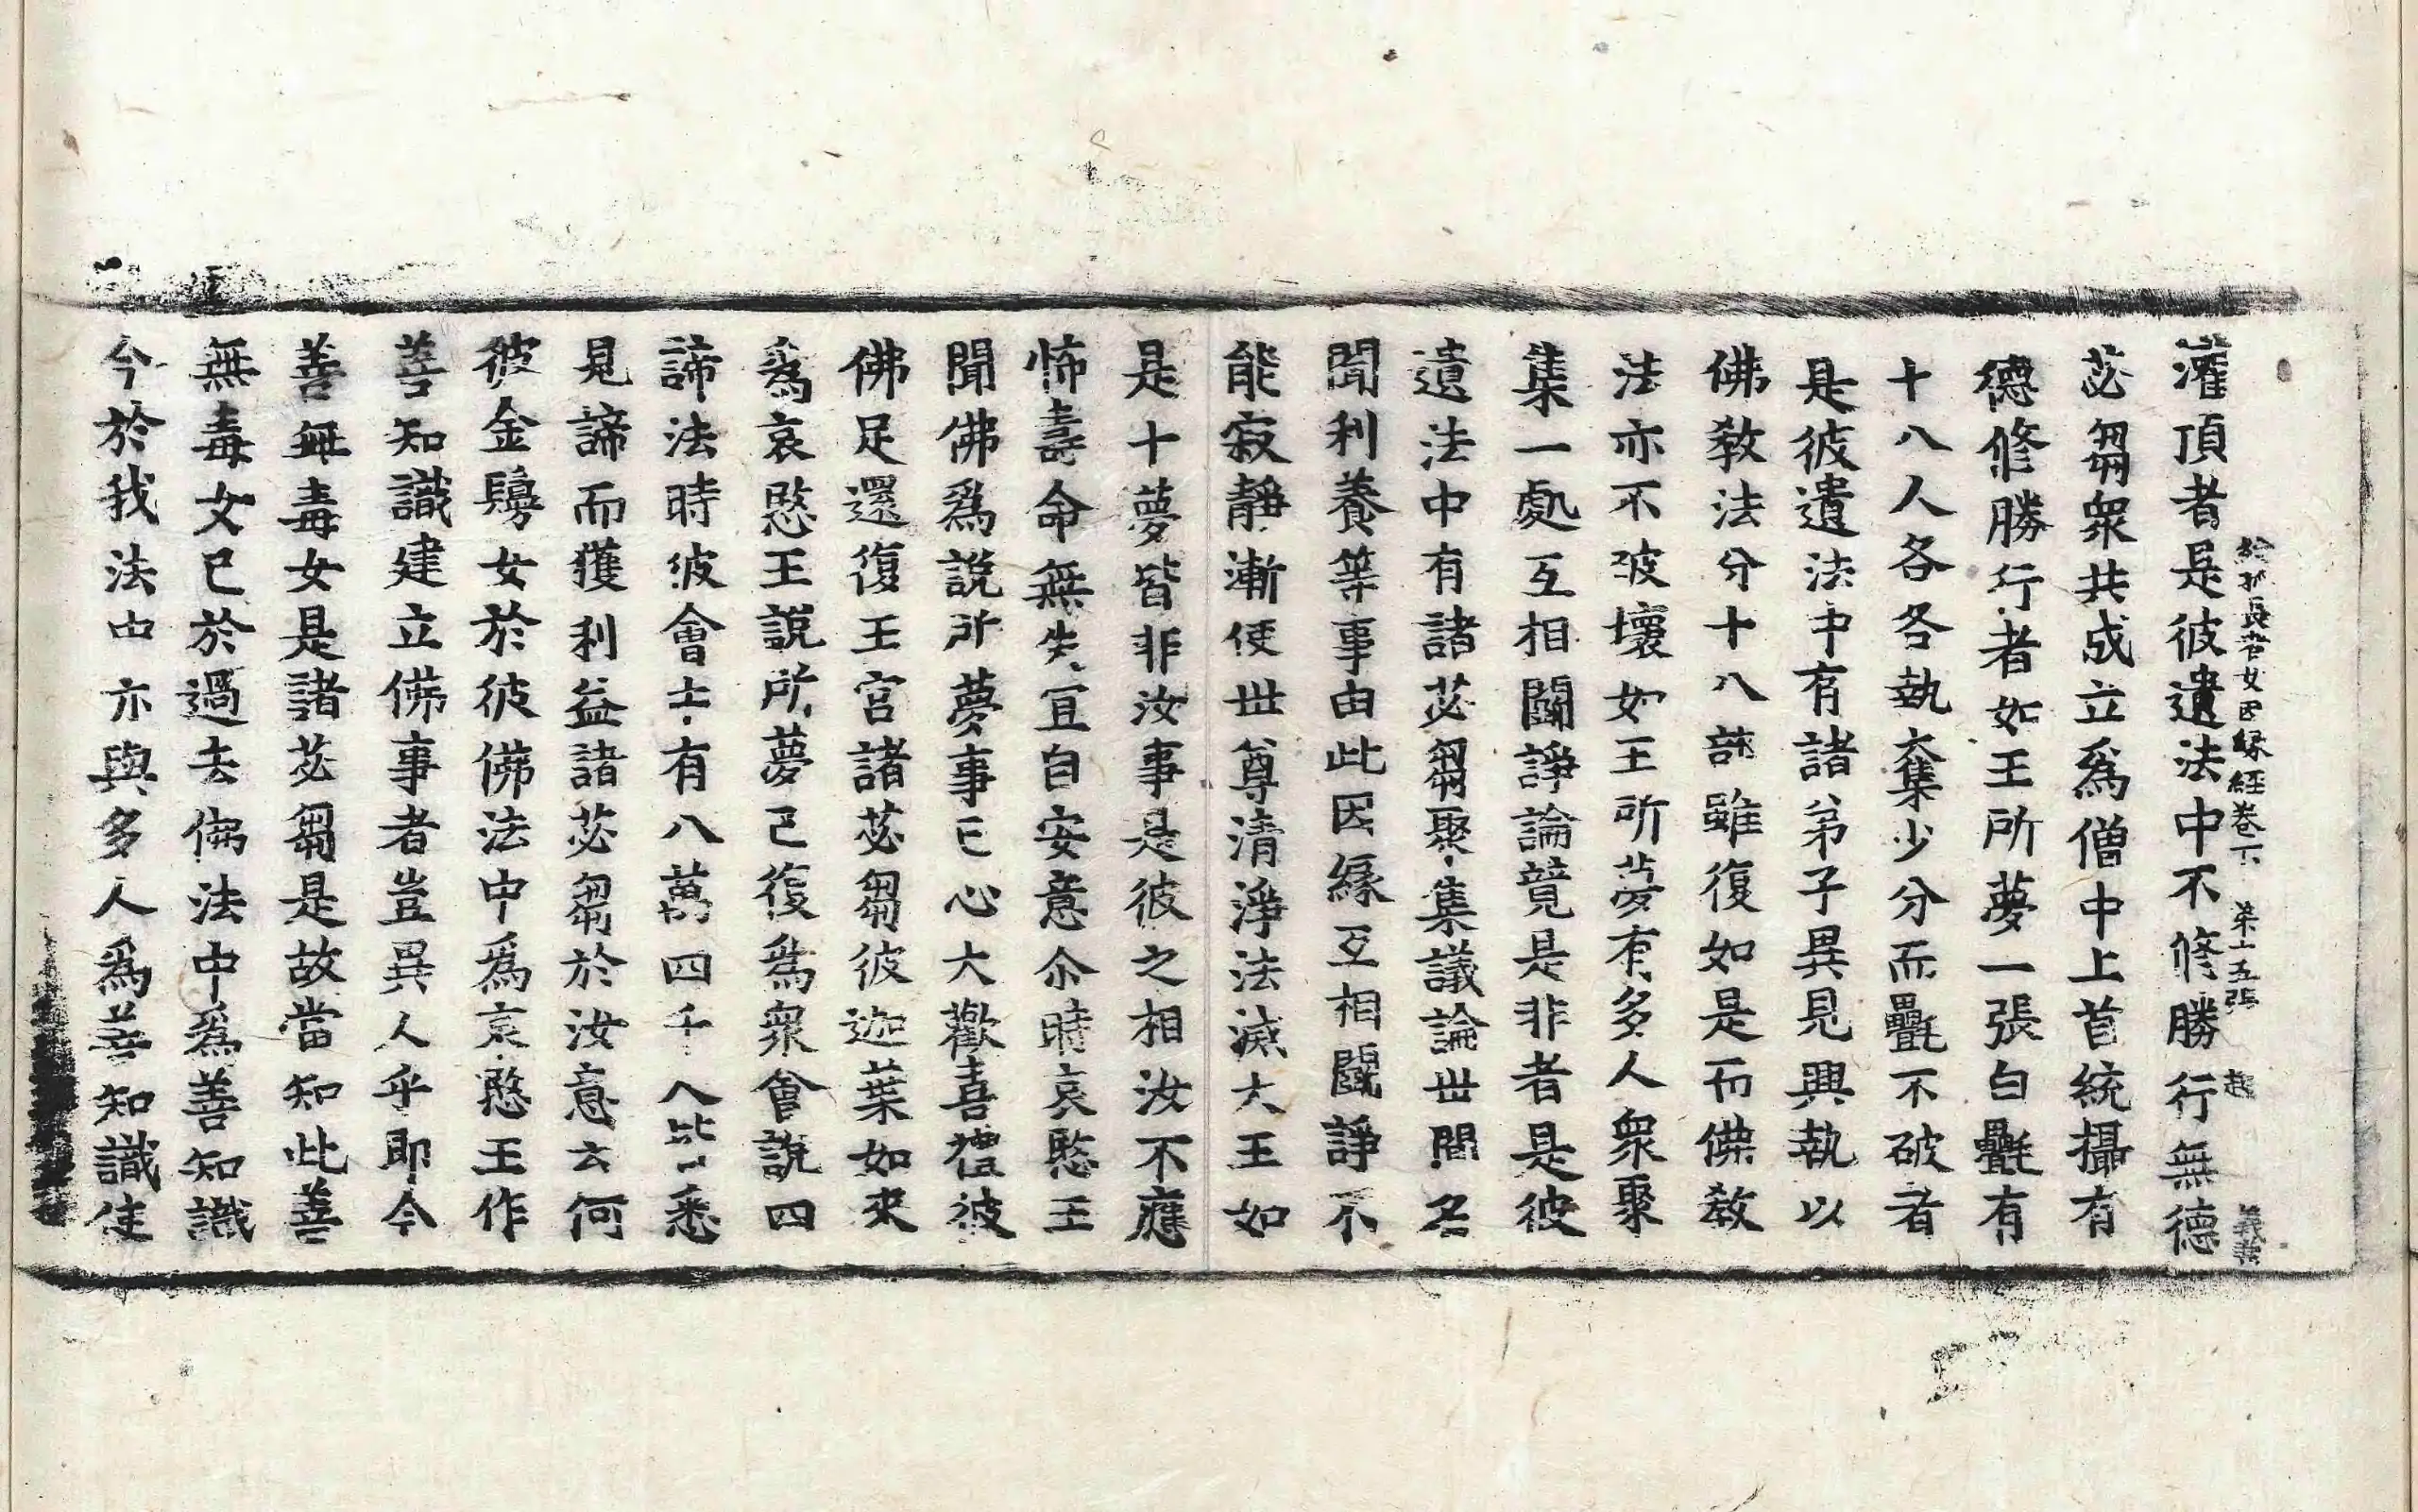 給孤長者女因縁經卷下 苐十五張 起
灌頂者是彼遺法中不修勝行無德
苾芻衆共成立爲僧中上首統攝有
德修勝行者如王所夢一張白㲲有
十八人各各執奪少分而㲲不破者
是彼遺法中有諸弟子異見興執以
佛教法分十八部雖復如是而佛教
法亦不破壞如王所夢有多人衆聚
集一處互相鬪諍論競是非者是彼
遺法中有諸苾芻聚集議論世間名
聞利養等事由此因縁互相鬪諍不
能寂靜漸使世尊清淨法滅大王如
是十夢皆非汝事是彼之相汝不應
怖壽命無失宜自安意尒時哀愍王
聞佛爲說所夢事已心大歡喜禮彼
佛足還復王宮諸苾芻彼迦葉如來
爲哀愍王說所夢已復爲衆會說四
諦法時彼會士有八萬四千人皆悉
見諦而獲利益諸苾芻於汝意云何
彼金鬘女於彼佛法中爲哀愍王作
善知識建立佛事者豈異人乎即今
善無毒女是諸苾芻是故當知此善
無毒女已於過去佛法中爲善知識
今於我法中亦與多人爲善知識使